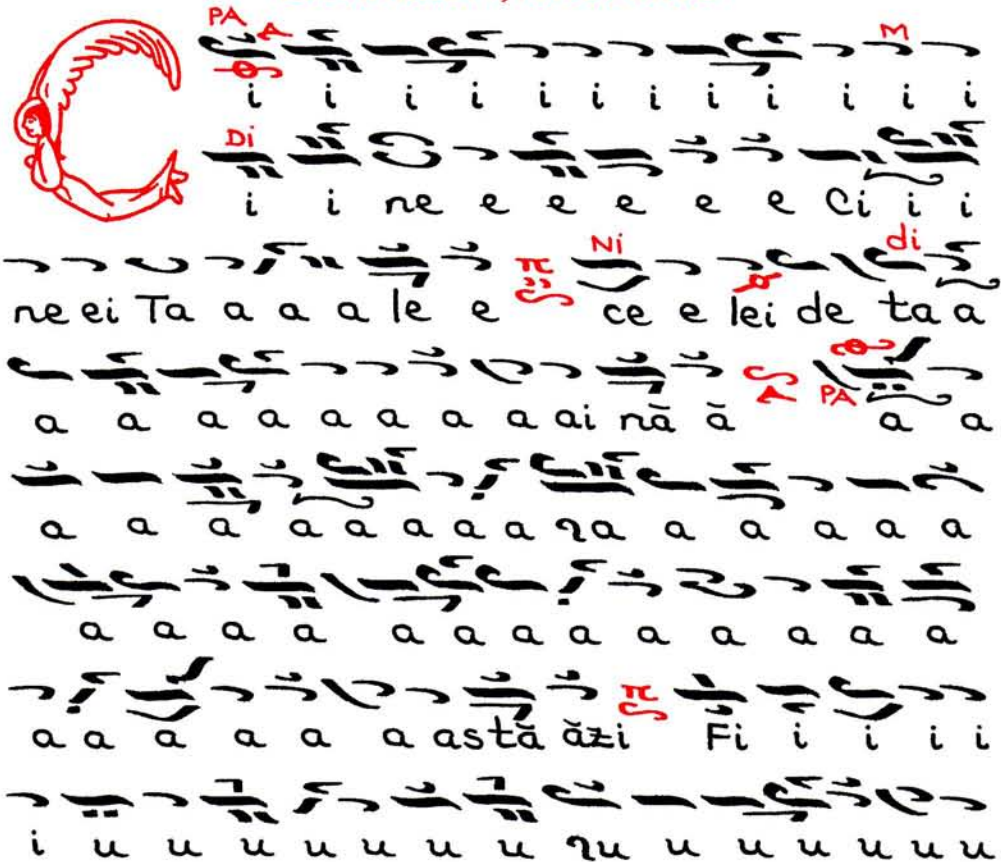 PA M
C i i i i i i i i i i i i
Di
i i ne e e e e e Ci i i
π Ni di
ne ei Ta a a a le e ce e lei de ta a
PA
a a a a a a a a ai nă ă a a
a a a a a a a a ɿa a a a a a
a a a a a a a a a a a a a
π
a a a a a a astă ăzi Fi i i i i
i u u u u u u u ɿu u u u u u u